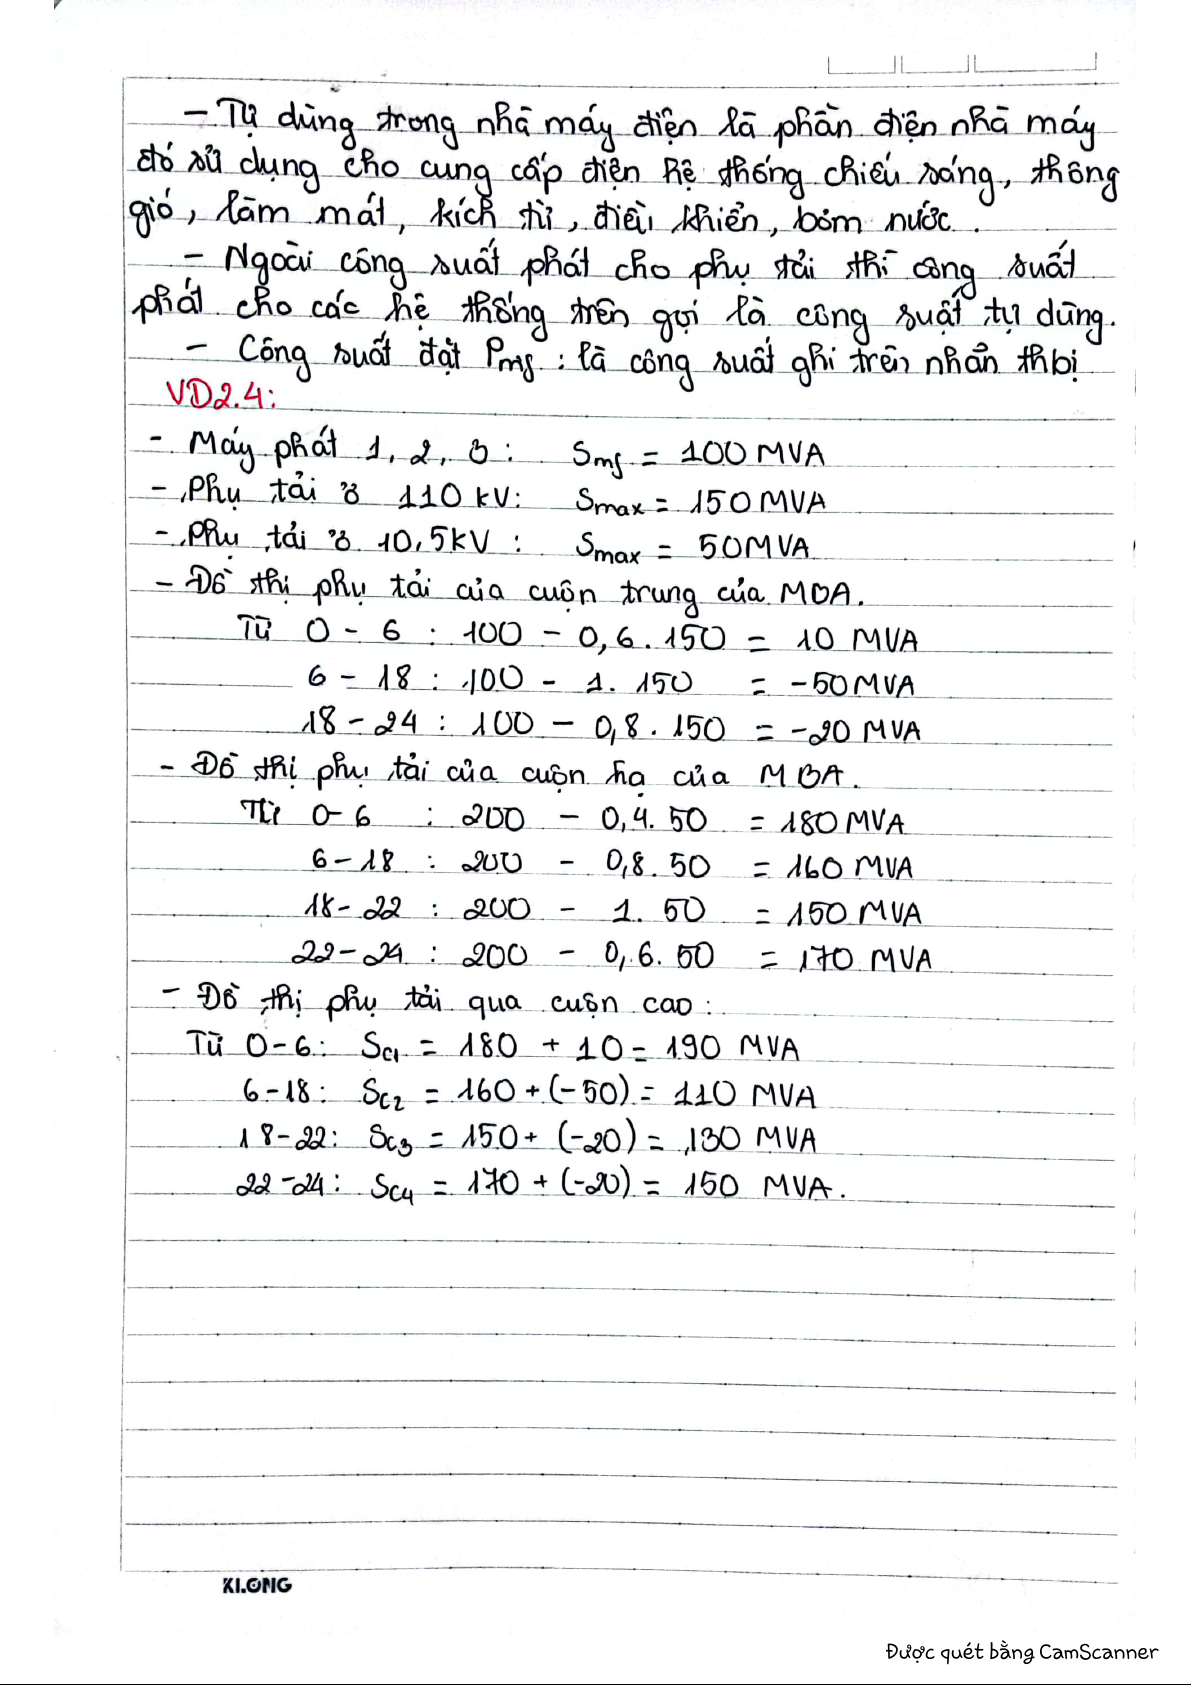 - Tự dùng trong nhà máy điện là phần điện nhà máy
đó sử dụng cho cung cấp điện hệ thống chiếu sáng, thông
gió, làm mát, kích từ, điều khiển, bơm nước.
- Ngoài công suất phát cho phụ tải thì công suất
phát cho các hệ thống trên gọi là công suất tự dùng.
- Công suất đặt Pmf : là công suất ghi trên nhãn thbị
VD2.4:
- Máy phát 1, 2, 3 : Smf = 100 MVA
- Phụ tải ở 110 kV: Smax = 150 MVA
- Phụ tải ở 10,5kV : Smax = 50MVA
- Đồ thị phụ tải của cuộn trung của MBA.
Từ 0 - 6 : 100 - 0,6.150 = 10 MVA
6 - 18 : 100 - 1.150 = -50MVA
18 - 24 : 100 - 0,8.150 = -20 MVA
- Đồ thị phụ tải của cuộn hạ của MBA.
Từ 0-6 : 200 - 0,4.50 = 180 MVA
6-18 : 200 - 0,8.50 = 160 MVA
18-22 : 200 - 1.50 = 150 MVA
22-24 : 200 - 0,6.50 = 170 MVA
- Đồ thị phụ tải qua cuộn cao :
Từ 0-6: Sc1 = 180 + 10 = 190 MVA
6-18: Sc2 = 160 + (-50) = 110 MVA
18-22: Sc3 = 150 + (-20) = 130 MVA
22-24: Sc4 = 170 + (-20) = 150 MVA.
KLONG
Được quét bằng CamScanner